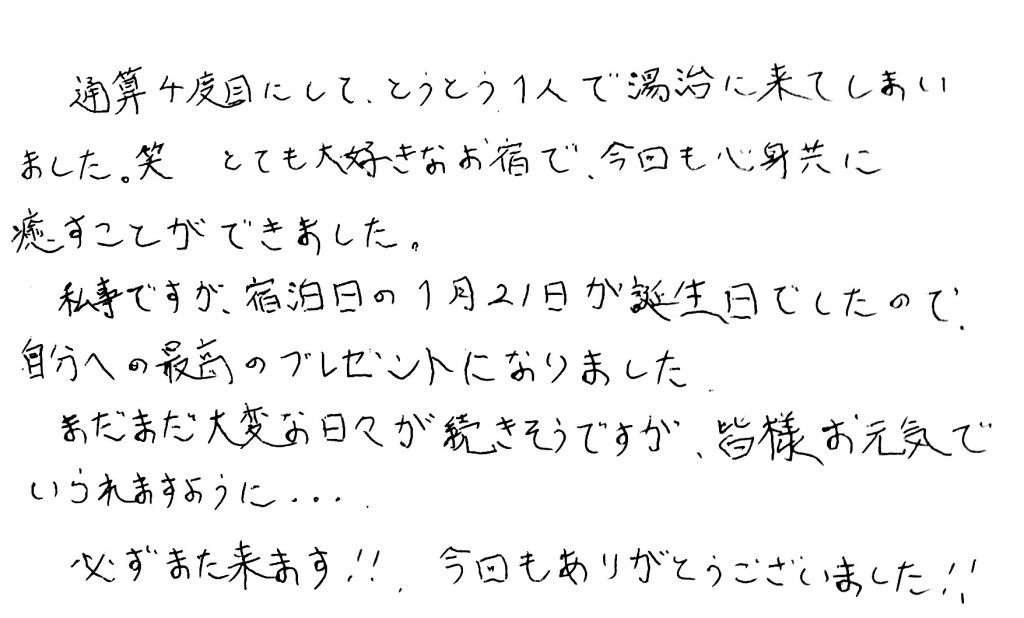 通算4度目にして、とうとう1人で湯治に来てしまい
ました。笑 とても大好きなお宿で、今回も心身共に
癒すことができました。
私事ですが、宿泊日の1月21日が誕生日でしたので、
自分への最高のプレゼントになりました.
まだまだ大変な日々が続きそうですが、皆様お元気で
いられますように....
必ずまた来ます!!. 今回もありがとうございました!!